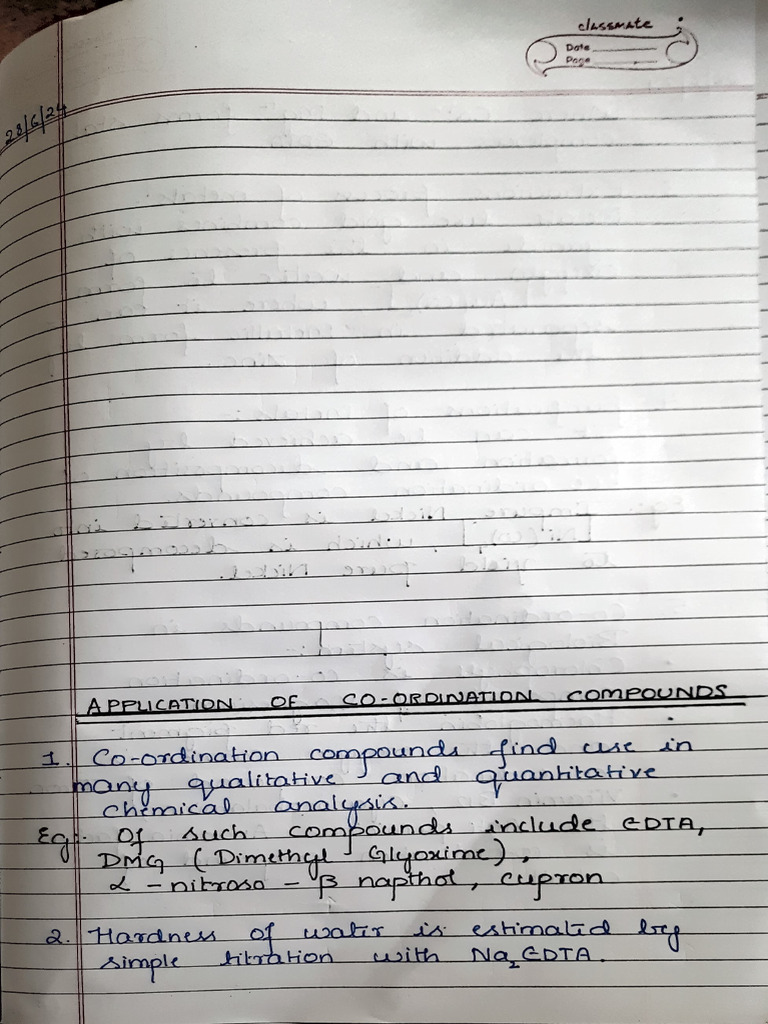 classmate
Date
Page
28/6/24
APPLICATION OF CO-ORDINATION COMPOUNDS
1. Co-ordination compounds find use in
many qualitative and quantitative
chemical analysis.
Eg:- Of such compounds include EDTA,
DMG (Dimethyl Glyoxime),
α - nitroso - β napthol, cupron
2. Hardness of water is estimated by
simple titration with Na₂EDTA.